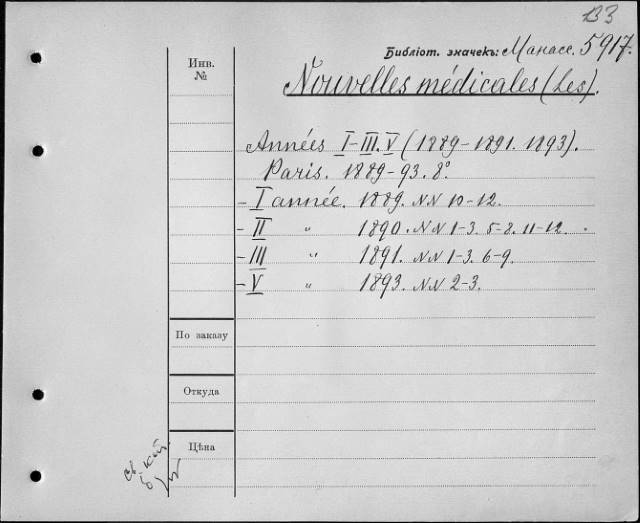 B3
Библіот. значекъ: Манасс. 5917.
Инв.
№
Nouvelles médicales (Les).
Années I-III. V (1889-1891. 1893).
Paris. 1889-93. 8°
- I année. 1889. NN 10-12.
- II " 1890. NN 1-3. 5-8. 11-12.
- III " 1891. NN 1-3. 6-9.
- V " 1893. NN 2-3.
По заказу
Откуда
Цѣна